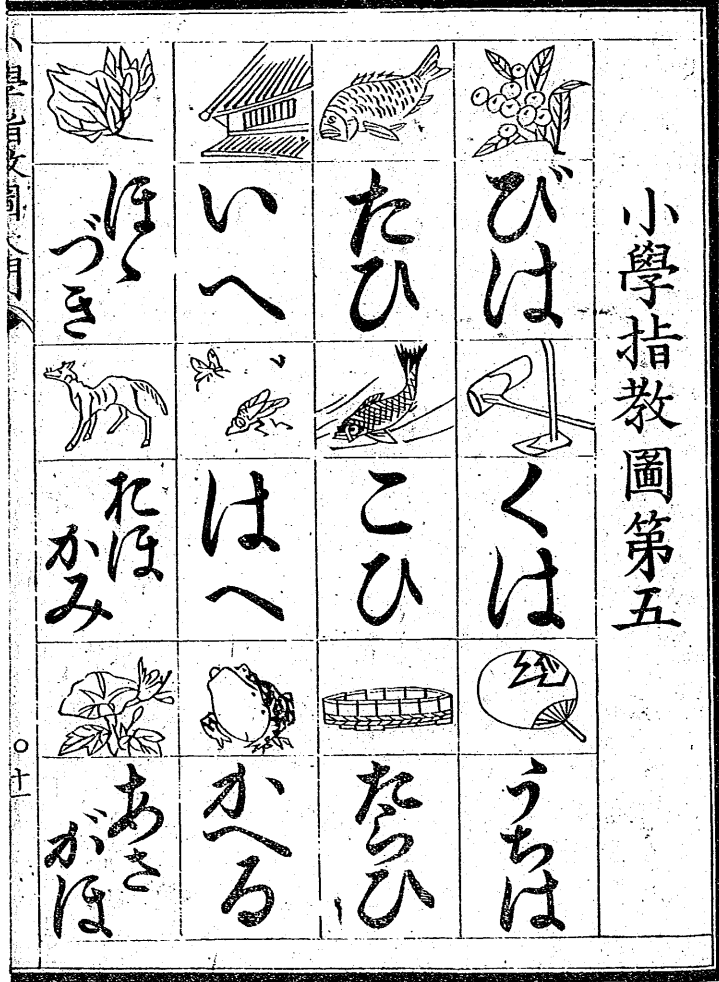 小學指教圖第五
びは
くは
うちは
たひ
こひ
たらひ
いへ
はへ
かへる
ほゝ
づき
おほ
かみ
あさ
がほ
〇十一